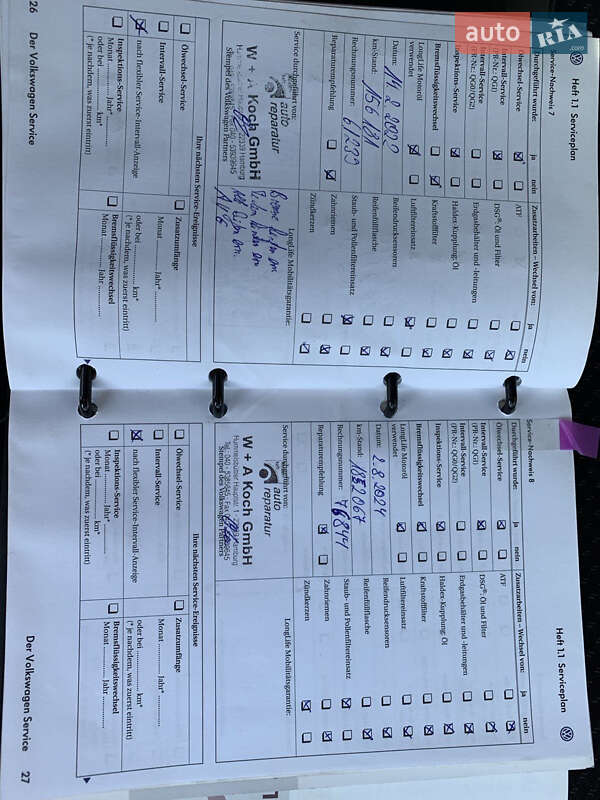 auto RIA.com
Heft 1.1 Serviceplan
Service-Nachweis 7
Durchgeführt wurde: ja nein
Zusatzarbeiten – Wechsel von: ja nein
Ölwechsel-Service
ATF
Intervall-Service
(PR-Nr.: QG1)
DSG®: Öl und Filter
Intervall-Service
(PR-Nr.: QG0/QG2)
Erdgasbehälter und -leitungen
Inspektions-Service
Haldex-Kupplung: Öl
Bremsflüssigkeitswechsel
Kraftstofffilter
LongLife Motoröl
verwendet
Luftfiltereinsatz
Datum: 14.2.2022
Reifendrucksensoren
km-Stand: 156181
Reifenfüllflasche
Rechnungsnummer: 61299
Staub- und Pollenfiltereinsatz
Reparaturempfehlung
Zahnriemen
Zündkerzen
Service durchgeführt von:
LongLife Mobilitätsgarantie:
auto
reparatur
W + A Koch GmbH
Stempel des Volkswagen Partners
Ihre nächsten Service-Ereignisse
Ölwechsel-Service
Zusatzumfänge
Intervall-Service
nach flexibler Service-Intervall-Anzeige
oder bei km*
(* je nachdem, was zuerst eintritt)
Inspektions-Service
Monat Jahr*
oder bei km*
(* je nachdem, was zuerst eintritt)
Bremsflüssigkeitswechsel
Monat Jahr
26 Der Volkswagen Service
Heft 1.1 Serviceplan
Service-Nachweis 8
Durchgeführt wurde: ja nein
Zusatzarbeiten – Wechsel von: ja nein
Ölwechsel-Service
ATF
Intervall-Service
(PR-Nr.: QG1)
DSG®: Öl und Filter
Intervall-Service
(PR-Nr.: QG0/QG2)
Erdgasbehälter und -leitungen
Inspektions-Service
Haldex-Kupplung: Öl
Bremsflüssigkeitswechsel
Kraftstofffilter
LongLife Motoröl
verwendet
Luftfiltereinsatz
Datum: 2.8.2024
Reifendrucksensoren
km-Stand:
Reifenfüllflasche
Rechnungsnummer:
Staub- und Pollenfiltereinsatz
Reparaturempfehlung
Zahnriemen
Zündkerzen
Service durchgeführt von:
LongLife Mobilitätsgarantie:
auto
reparatur
W + A Koch GmbH
Stempel des Volkswagen Partners
Ihre nächsten Service-Ereignisse
Ölwechsel-Service
Zusatzumfänge
Intervall-Service
nach flexibler Service-Intervall-Anzeige
oder bei km*
(* je nachdem, was zuerst eintritt)
Inspektions-Service
Monat Jahr*
oder bei km*
(* je nachdem, was zuerst eintritt)
Bremsflüssigkeitswechsel
Monat Jahr
Der Volkswagen Service 27